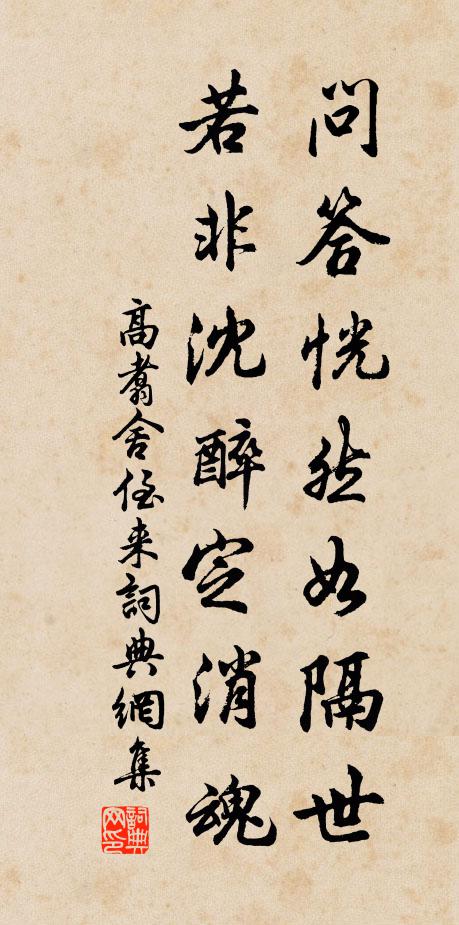 問答恍然如隔世
若非沈醉定消魂
高翥舍侄来詞典網集
詞典网印